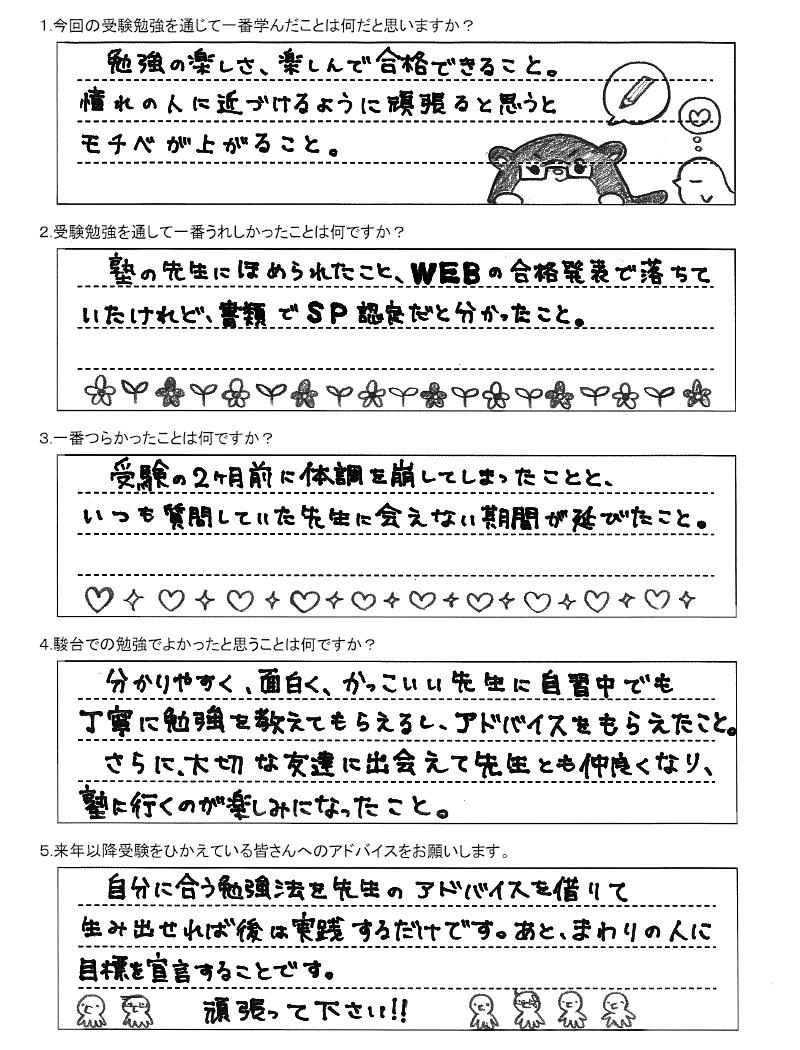 1.今回の受験勉強を通じて一番学んだことは何だと思いますか？
勉強の楽しさ、楽しんで合格できること。
憧れの人に近づけるように頑張ると思うと
モチベが上がること。
2.受験勉強を通して一番うれしかったことは何ですか？
塾の先生にほめられたこと、WEBの合格発表で落ちて
いたけれど、書類でSP認定だと分かったこと。
3.一番つらかったことは何ですか？
受験の2ヶ月前に体調を崩してしまったことと、
いつも質問していた先生に会えない期間が延びたこと。
4.駿台での勉強でよかったと思うことは何ですか？
分かりやすく、面白く、かっこいい先生に自習中でも
丁寧に勉強を教えてもらえるし、アドバイスをもらえたこと。
さらに、大切な友達に出会えて先生とも仲良くなり、
塾に行くのが楽しみになったこと。
5.来年以降受験をひかえている皆さんへのアドバイスをお願いします。
自分に合う勉強法を先生のアドバイスを借りて
生み出せれば後は実践するだけです。あと、まわりの人に
目標を宣言することです。
頑張って下さい!!